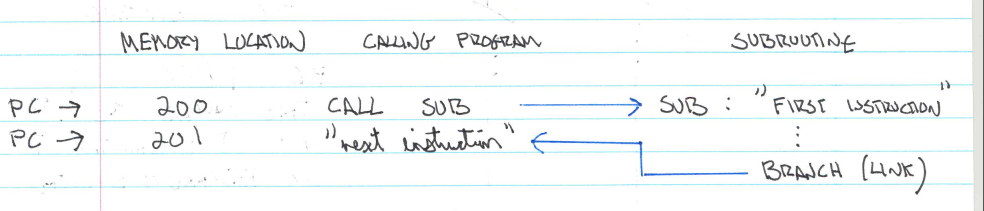 MEMORY LOCATION CALLING PROGRAM SUBROUTINE
PC → 200 CALL SUB → SUB : "FIRST INSTRUCTION"
PC → 201 "next instruction" ←
⋮
BRANCH (LINK)